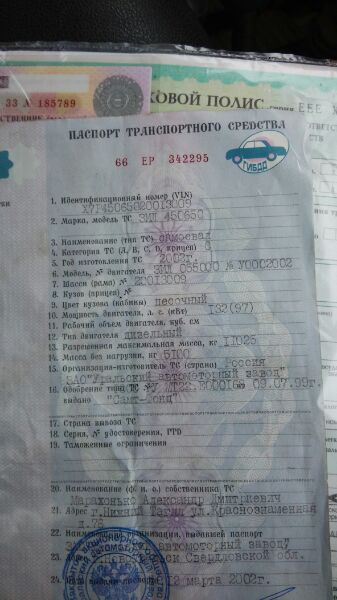 33 А 185789
КОВОЙ ПОЛИС серия ЕЕЕ
ПАСПОРТ ТРАНСПОРТНОГО СРЕДСТВА
66 ЕР 342295
ГИБДД
1. Идентификационный номер (VIN)
2. Марка, модель ТС ЗИЛ 450650
3. Наименование (тип ТС) самосвал
4. Категория ТС (А, В, С, D, прицеп)
5. Год изготовления ТС 2002г.
6. Модель, № двигателя ЗИЛ
7. Шасси (рама) № 20013009
8. Кузов (прицеп) №
9. Цвет кузова (кабины) песочный
10. Мощность двигателя, л. с. (кВт) 132(97)
11. Рабочий объем двигателя, куб. см
12. Тип двигателя дизельный
13. Разрешенная максимальная масса, кг 11025
14. Масса без нагрузки, кг 5100
15. Организация-изготовитель ТС (страна) Россия
ЗАО "Уральский автомоторный завод"
16. Одобрение типа ТС № 09.07.99г.
выдано
17. Страна вывоза ТС
18. Серия, № удостоверения, PTD
19. Таможенные ограничения
20. Наименование (ф. и. о.) собственника ТС
Александр Дмитриевич
21. Адрес г.Нижний Тагил ул.Краснознаменная
д.76
22. Наименование организации, выдавшей паспорт
автомоторный завод"
23. Свердловской обл.
24. Дата выдачи паспорта 12 марта 2002г.